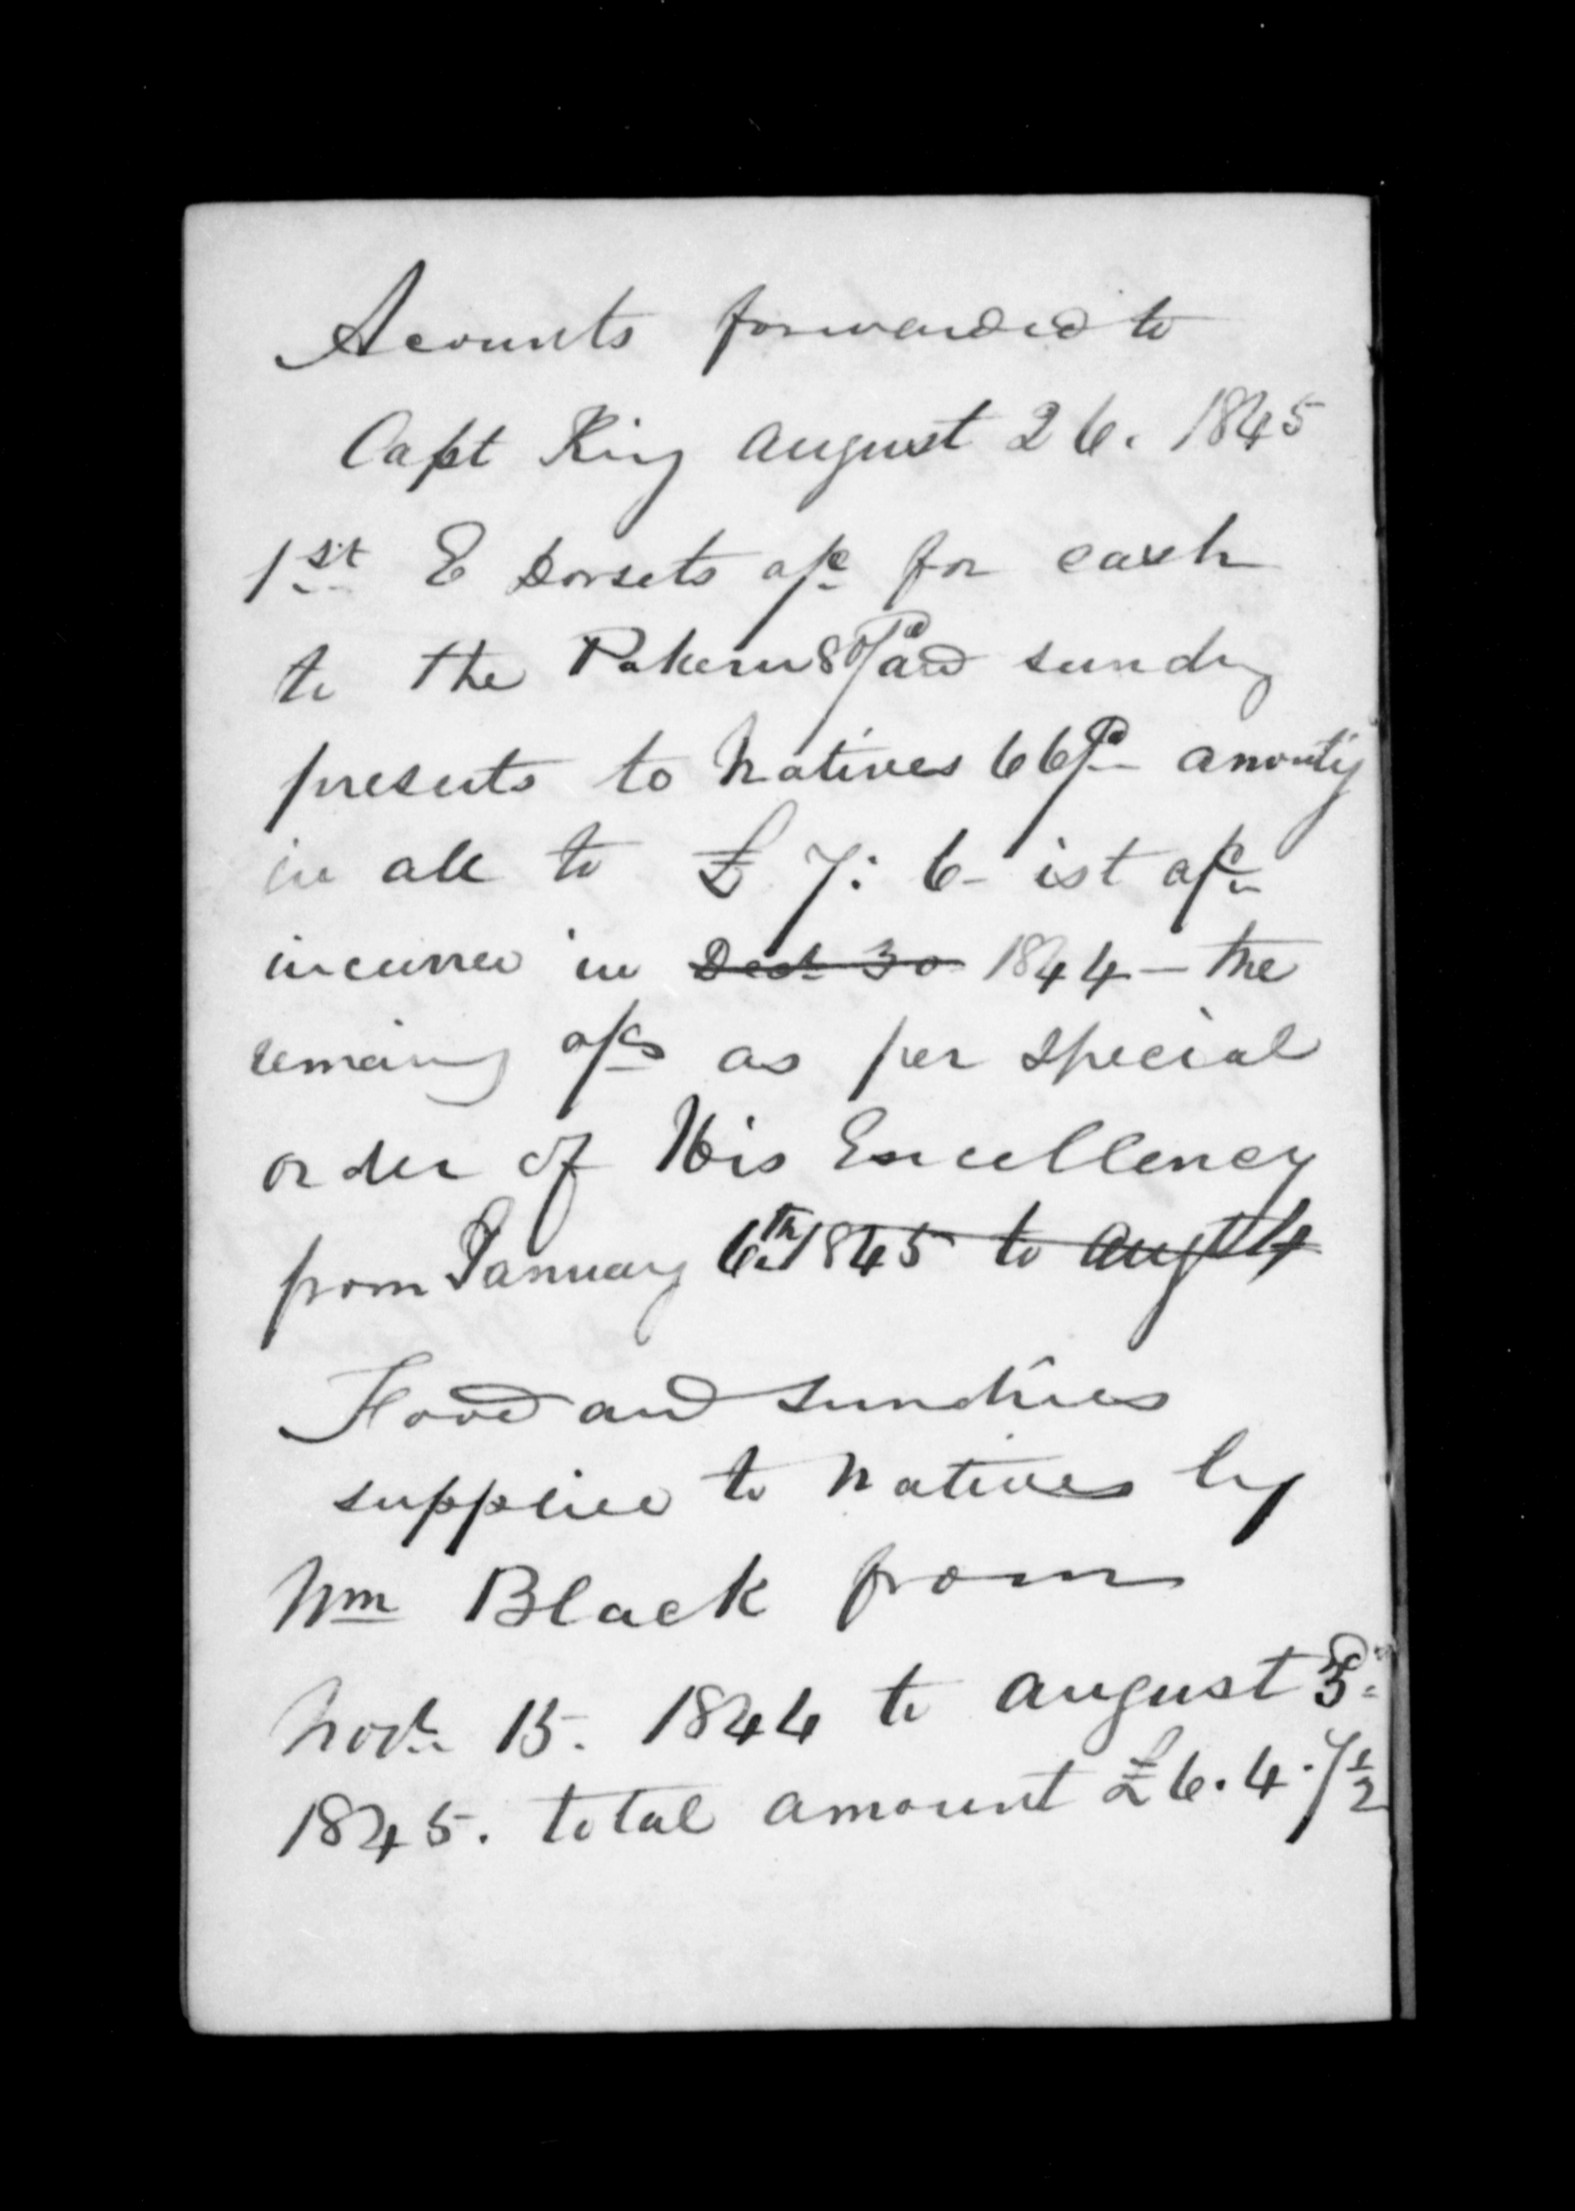 Acounts forwarded to
Capt King August 26. 1845
1st E Dorsets a/c for cash
to the Pakeru 80/ and sundry
presents to Natives 66/ amountg
in all to £ 7: 6 - 1st a/c
incurred in Decr 30 1844 - the
remaing a/cs as per special
order of His Excellency
from January 6th 1845 to Augt 4
Food and sundries
supplied to Natives by
Wm Black from
Novr 15. 1844 to August 3d
1845. total amount £6.4.7½